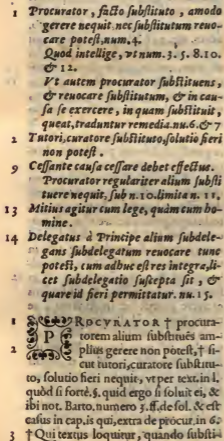 1 Procurator, facto substituto, amodo
gerere nequit nec substitutum reuo-
care potest, num. 4.
Quod intellige, vt num. 3. 5. 8. 10.
& 12.
Vt autem procurator substituens,
& reuocare substitutum, & in cau-
sa se exercere, in quam substituit,
queat, traduntur remedia. nu. 6. & 7
2 Tutori, curatore substituto, solutio fieri
non potest.
9 Cessante causa cessare debet effectus.
Procurator regulariter alium substi
tuere nequit, sub n. 10. limita n. 11.
13 Mitius agitur cum lege, quàm cum ho-
mine.
14 Delegatus à Principe alium subdele-
gans subdelegatum reuocare tunc
potest, cum adhuc est res integra, li-
cet subdelegatio suscepta sit, &
quare id fieri permittatur. nu. 15.
1 PROCVRATOR † procura-
torem alium substitués am-
plius gerere non potest, † si
cut tutori, curatore substitu-
to, solutio fieri nequit, vt per text. in l.
quòd si forté, §. quid ergo si soluit ei, &
ibi not. Barto. numero 3. ff. de sol. & est
casus in cap. is qui, extra de procur. in 6.
3 † Qui textus loquitur, quando substi